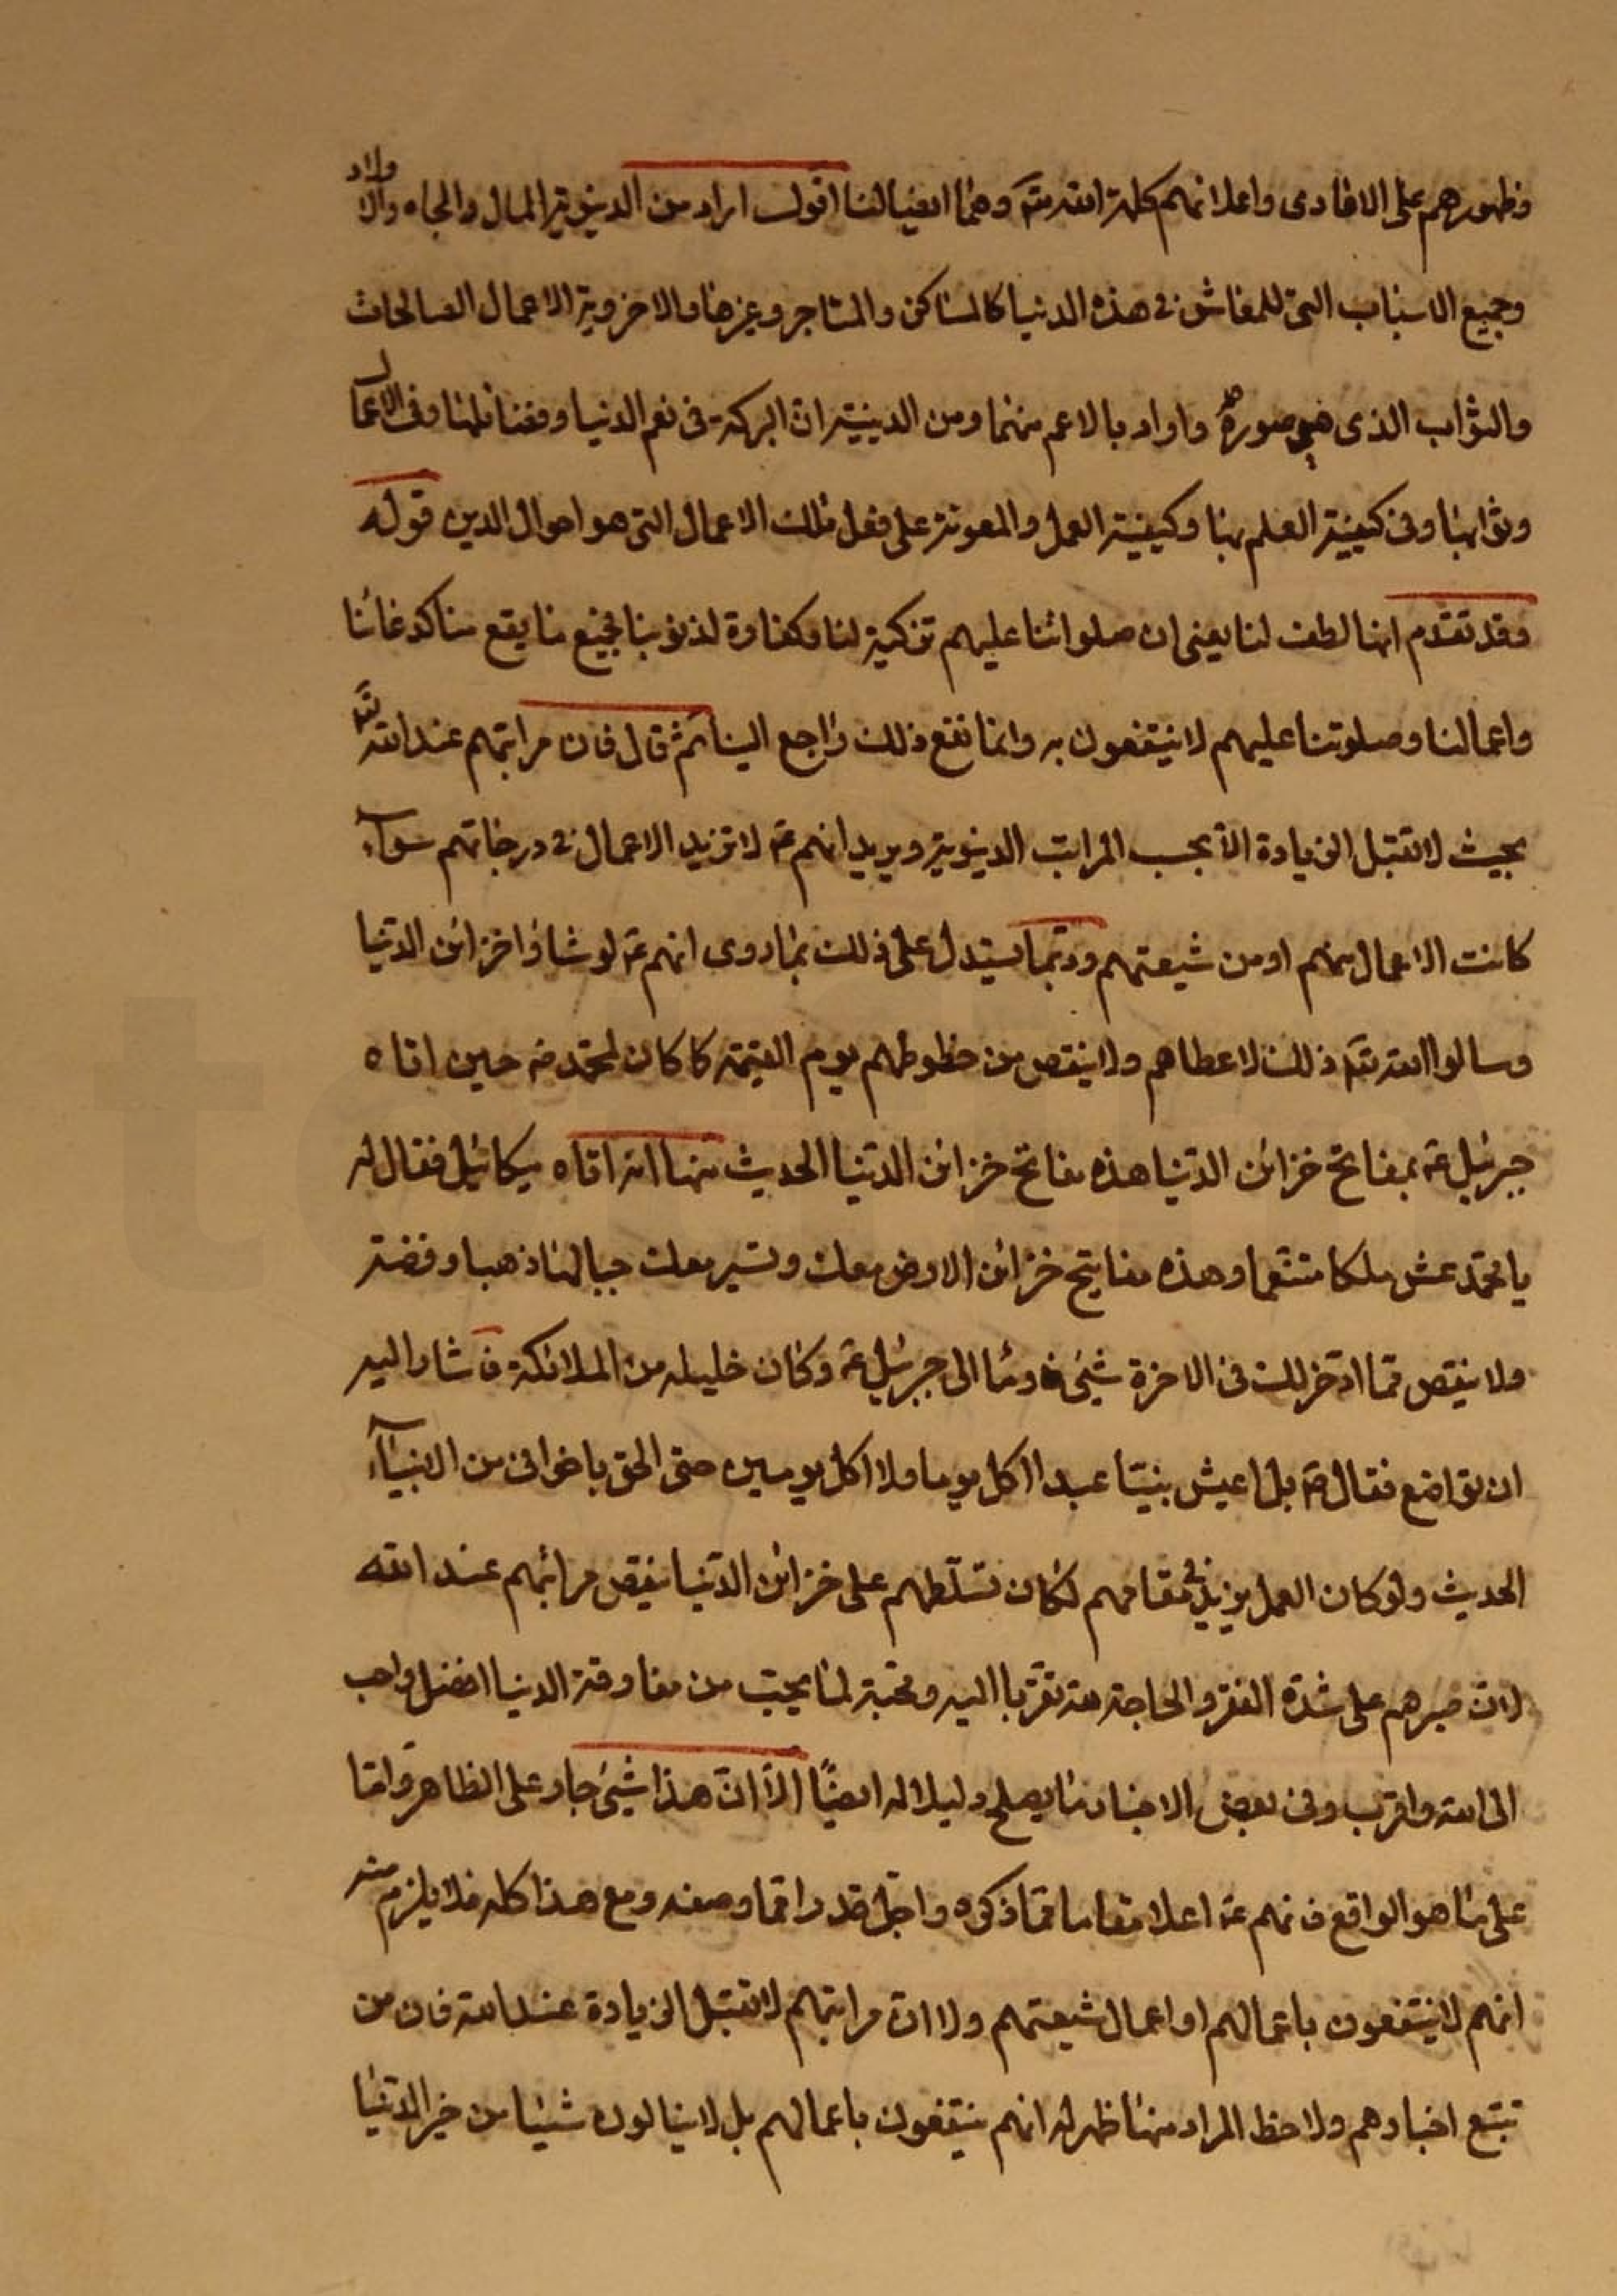 وظهورهم على الاعادى واعلائهم كلمة الله تعۤ وهما ايضا لنا اقول اراد من الدنيوية المال والجاه والاولاد
وجميع الاسباب التى للمعاش فى هذه الدنيا كالمساكن والمتاجر وغيرها والاخروية الاعمال الصالحات
والثواب الذى هو صورة واراد بالاعم منهما ومن الدينية ان البركة فى نعم الدنيا ومضاعفتها وفى الاعمال
وثوابها وفى كيفية العلم بها وكيفية العمل والمعونة على فعل تلك الاعمال التى هو احوال الدين قوله
وقد تقدم انها لطف لنا يعنى ان صلواتنا عليهم تزكية لنا وكفارة لذنوبنا فجميع ما يقع منا كدعائنا
واعمالنا وصلوتنا عليهم لا ينتفعون به وانما نفع ذلك راجع الينا ثم قال فان مراتبهم عند الله تعۤ
بحيث لا تقبل الزيادة الا بحسب المراتب الدنيوية ويريد انهم عۤ لا تزيد الاعمال فى درجاتهم سوآء
كانت الاعمال منهم او من شيعتهم وربّما يستدل على ذلك بما روى انهم عۤ لو شاؤا خزائن الدنيا
وسالوا الله تعۤ ذلك لاعطاهم ولا ينقص من حظوظهم يوم القيمة كما كان لمحمد صۤ حين اتاه
جبرئيل عۤ بمفاتح خزائن الدنيا هذه مفاتح خزائن الدنيا الحديث منها انه اتاه ميكائيل فقال له
يا محمد عش ملكا متنعما وهذه مفاتيح خزائن الارض معك وتسير معك جبالها ذهبا وفضة
ولا ينقص مما ادّخر لك فى الاخرة شيئ فاومأ الى جبرئيل عۤ وكان خليله من الملائكة فاشار اليه
ان تواضع فقال صۤ بل اعيش نبيّا عبدا اكل يوما ولا اكل يومين حتى الحق باخوانى من الانبيآء
الحديث ولو كان العمل يزيد فى مقامهم لكان تسلّطهم على خزائن الدنيا ينقص مراتبهم عند الله
لان صبرهم على شدة الفقر والحاجة لله تقربا اليه ومحبة لما يحبّ من مفارقة الدنيا افضل واحب
الى الله واقرب وفى بعض الاخبار ما يصلح دليلا له ايضًا الّا ان هذا شيئ جار على الظاهر وامّا
على ما هو الواقع فانهم عۤ اعلا مقاما مما ذكره واجلّ قدرا مما وصفه ومع هذا كله فلا يلزم منه
انهم لا ينتفعون باعمالهم او اعمال شيعتهم ولا ان مراتبهم لا تقبل الزيادة عند الله فان من
تتبع اخبارهم ولاحظ المراد منها ظهر له انهم ينتفعون باعمالهم بل لا ينالون شيئا من خير الدنيا